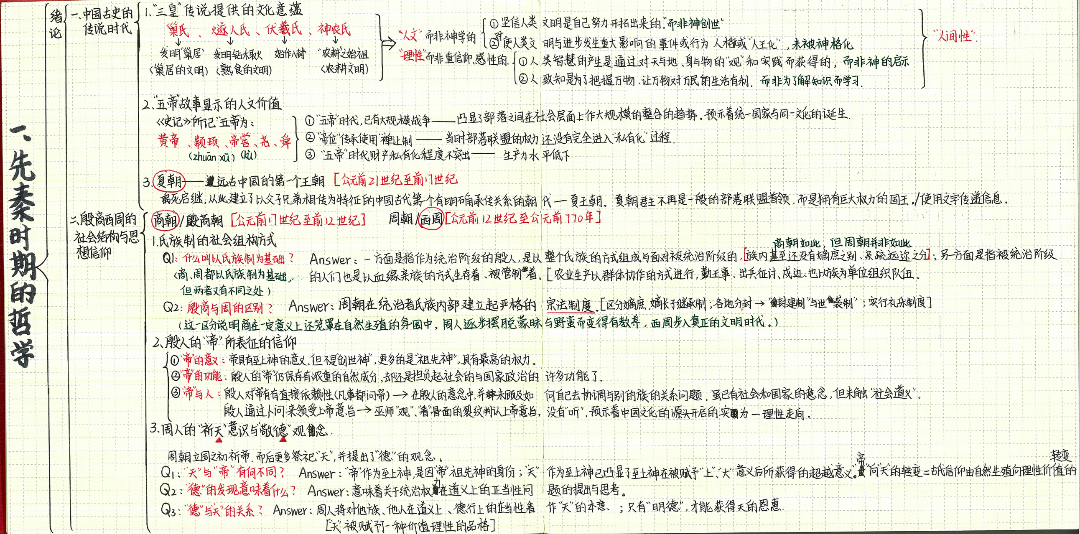 一、先秦时期的哲学
绪论
一.中国古史的传说时代
1."三皇"传说提供的文化意蕴
巢氏、燧人氏、伏羲氏、神农氏
发明巢居 发明钻木取火 始作八卦 农耕之始祖
(巢居的文明) (熟食的文明) (农耕文明)
"人文"而非神学的
"理性"而非重信仰、感性的
①坚信人类文明是自己努力开拓出来的,而非神创世
②使人类文明与进步发生重大影响的事件或行为人格或"人王化",未被神格化
①人类智慧的产生是通过对天与地、身与物的"观"和实践而获得的,而非神的启示
②人致知是为了把握万物、让万物对万民的生活有利,而非为了解知识而学习.
"人间性"
2."五帝"故事显示的人文价值
《史记》所记"五帝"为:
黄帝、颛顼、帝喾、尧、舜
(zhuān xū) (kù)
①"五帝"时代,已有大规模战争——凸显了部落之间在社会层面上作大规模的整合的趋势,预示着统一国家与同一文化的诞生.
②"帝位"传承使用"禅让制——当时部落联盟的权力还没有完全进入"私有化"过程.
③"五帝"时代财产私有化程度不突出——生产力水平低下
3.夏朝——远古中国的第一个王朝[公元前21世纪至前17世纪
禹死启继,从此建立了以父子兄弟相传为特征的中国古代第一个有明确承传关系的朝代—夏王朝. 夏朝君主不再是一般的部落联盟首领,而是拥有巨大权力的国王./使用文字传递信息.
二.殷商西周的社会结构与思想信仰
商朝/殷商朝[公元前17世纪至前12世纪] 周朝/西周[公元前12世纪至公元前770年]
1.氏族制的社会组构方式
商朝如此,但周朝并非如此
Q1:什么叫以氏族制为基础? Answer:一方面是指作为统治阶级的殷人,是以整个氏族的方式组成与面对被统治阶级的.[族内甚至还没有嫡庶之别、亲疏远近之分];另一方面是指被统治阶级
(商、周都以氏族制为基础, 的人们也是以血缘亲族的方式生存着、被管制着.[农业生产以群体协作的方式进行,勤王事、出兵征讨、戍边,也以族为单位组织队伍.
但两者又有不同之处)
Q2:殷商与周的区别? Answer:周朝在统治者氏族内部建立起严格的宗法制度.[区分嫡庶,嫡长子继承制;各地分封→"封建制"与世袭制";实行礼乐制度]
(这一区分说明商在一定意义上还笼罩在自然生殖的氛围中,周人逐步摆脱蒙昧与野蛮而变得有教养,西周步入真正的文明时代.)
2.殷人的"帝"所表征的信仰
①"帝"的意义:帝具有至上神的意义,但不是创世神",更多的是"祖先神",具有最高的权力.
②"帝"的功能:殷人的"帝"仍保存有浓重的自然成分,却还是担负起社会的与国家政治的许多功能了.
③"帝"与人:殷人对"帝"有直接依赖性(凡事都问帝)→在殷人的意念中,并未顾及如何自己去协调与别的族的关系问题,虽已有社会和国家的意念,但未触"社会道义".
殷人通过卜问来领受上帝意旨→巫师"观""看"骨面的裂纹判认上帝意旨,没有"听",预示着中国文化的源头开启的实为一理性走向.
3.周人的"祈天"意识与敬德"观念.
周朝立国之初祈帝,而后更多祭祀"天",并提出了"德"的观念.
Q1:"天"与"帝"有何不同? Answer:"帝"作为至上神,是因"帝"祖先神的身份;"天"作为至上神已凸显了至上神在被赋予"上"、"大"意义后所获得的超越意义."帝"向"天"的转变=古代信仰由自然生殖向理性价值的转变
Q2:"德"的发现意味着什么? Answer:意味着关于统治权力在道义上的正当性问题的提出与思考.
Q3:"德"与"天"的关系? Answer:周人将对他族、他人在道义上、德行上的正当性看作"天"的本意.;只有"明德",才能获得天的恩惠.
[天"被赋予一种价值理性的品格]